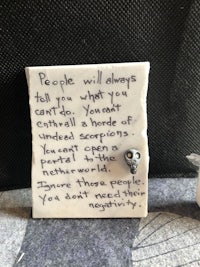 People will always
tell you what you
can't do. You can't
enthrall a horde of
undead scorpions.
You can't open a
portal to the
netherworld.
Ignore those people.
You don't need their
negativity.